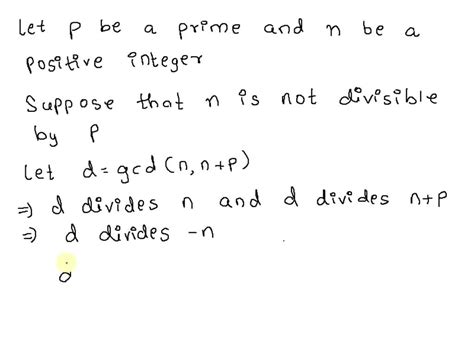 Let p be a prime and n be a
positive integer
Suppose that n is not divisible
by p
Let d = gcd (n, n+p)
⇒ d divides n and d divides n+p
⇒ d divides -n
d